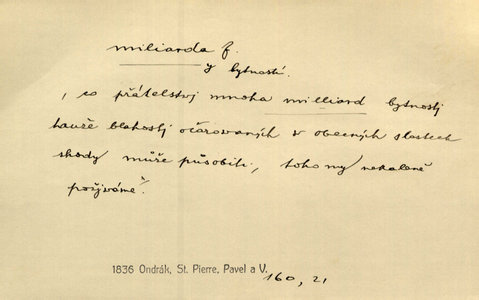 miliarda f.
y bytností.
, co přátelstvj mnoha milliard bytnostj
tauže blahostj očarovaných v obecných slastech
shody může působiti, toho my nekaleně
požjváme".
1836 Ondrák, St. Pierre, Pavel a V.
160, 21